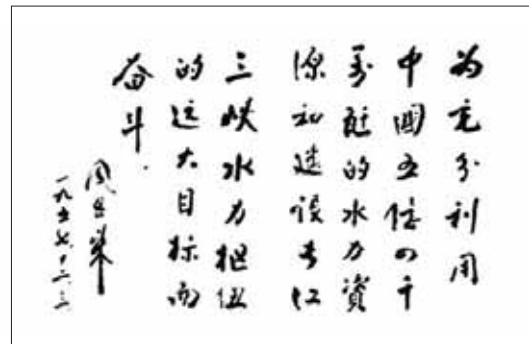 为充分利用
中國五億四千
萬瓩的水力資
源和建設长江
三峡水力枢纽
的远大目标而
奋斗.
周恩来
一九五七.十二.三